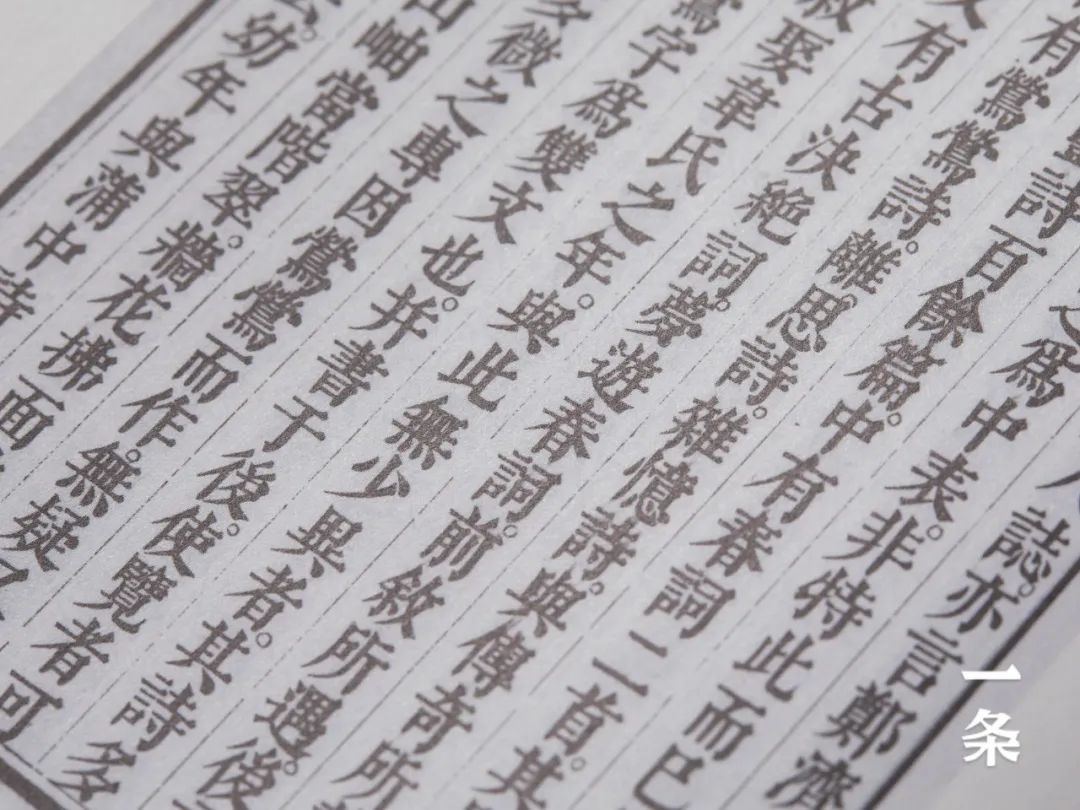 誌亦言鄭濟
之爲中表。非特此而已
詩百餘篇。中有春詞二首。其
有鶯鶯詩。離思詩。雜憶詩。與傳奇所
又有古決絕詞。夢遊春詞。前敘所遇。後
敘娶韋氏之年。與此無少異者。其詩多
鶯字爲雙文也。并書于後。使覽者可
多微之專因鶯鶯而作。無疑又
山岫當階翠。牆花拂面
公。幼年與蒲中
一条